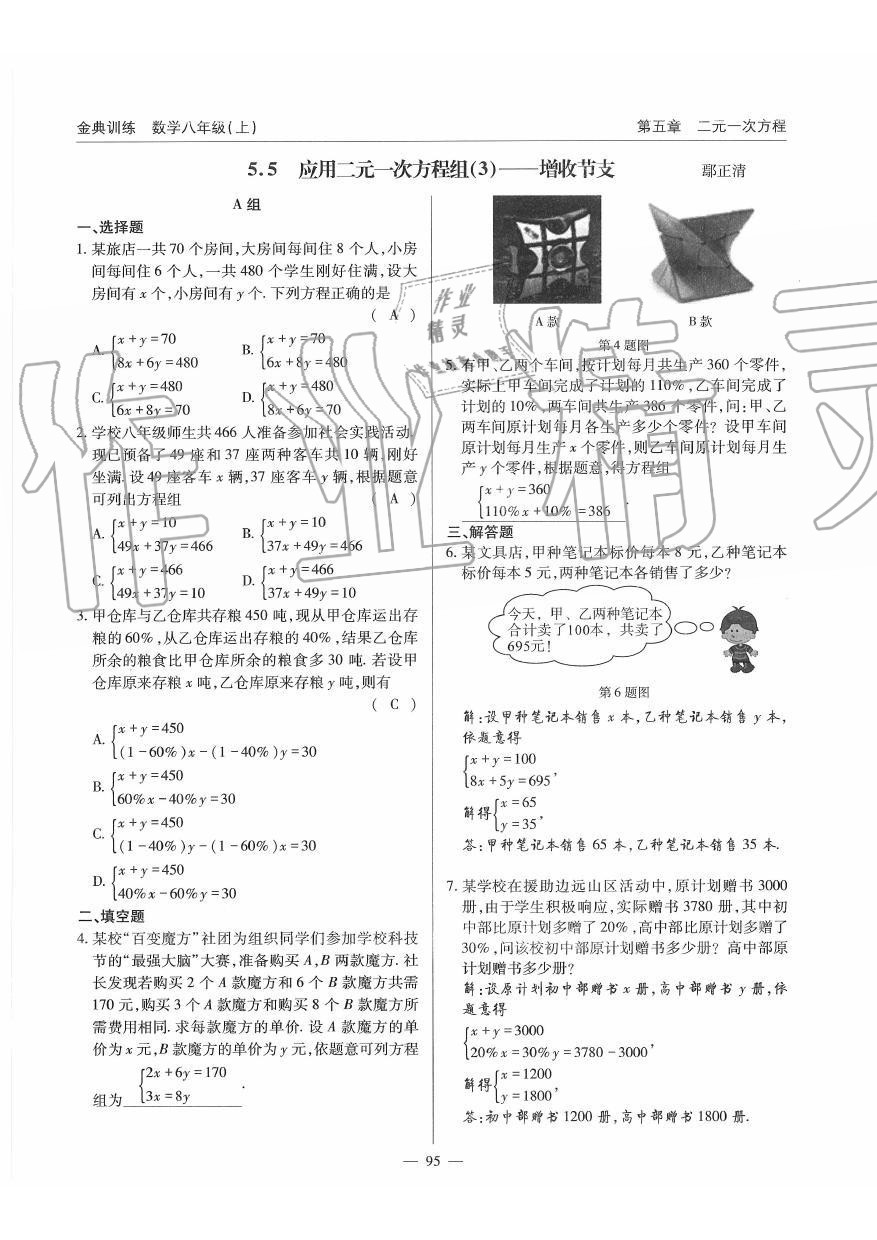 金典训练 数学八年级(上)
第五章 二元一次方程
5.5 应用二元一次方程组(3)——增收节支 鄢正清
A 组
一、选择题
1. 某旅店一共 70 个房间,大房间每间住 8 个人,小房
间每间住 6 个人,一共 480 个学生刚好住满,设大
房间有 x 个,小房间有 y 个. 下列方程正确的是
( A )
A. {x+y=70
8x+6y=480
B. {x+y=70
6x+8y=480
C. {x+y=480
6x+8y=70
D. {x+y=480
8x+6y=70
2. 学校八年级师生共 466 人准备参加社会实践活动.
现已预备了 49 座和 37 座两种客车共 10 辆,刚好
坐满. 设 49 座客车 x 辆,37 座客车 y 辆,根据题意
可列出方程组 ( A )
A. {x+y=10
49x+37y=466
B. {x+y=10
37x+49y=466
C. {x+y=466
49x+37y=10
D. {x+y=466
37x+49y=10
3. 甲仓库与乙仓库共存粮 450 吨,现从甲仓库运出存
粮的 60%,从乙仓库运出存粮的 40%,结果乙仓库
所余的粮食比甲仓库所余的粮食多 30 吨. 若设甲
仓库原来存粮 x 吨,乙仓库原来存粮 y 吨,则有
( C )
A. {x+y=450
(1-60%)x-(1-40%)y=30
B. {x+y=450
60%x-40%y=30
C. {x+y=450
(1-40%)y-(1-60%)x=30
D. {x+y=450
40%x-60%y=30
二、填空题
4. 某校“百变魔方”社团为组织同学们参加学校科技
节的“最强大脑”大赛,准备购买 A,B 两款魔方. 社
长发现若购买 2 个 A 款魔方和 6 个 B 款魔方共需
170 元,购买 3 个 A 款魔方和购买 8 个 B 款魔方所
需费用相同. 求每款魔方的单价. 设 A 款魔方的单
价为 x 元,B 款魔方的单价为 y 元,依题意可列方程
组为 {2x+6y=170
3x=8y .
A 款 B 款
第 4 题图
5. 有甲、乙两个车间,按计划每月共生产 360 个零件,
实际上甲车间完成了计划的 110%,乙车间完成了
计划的 10%,两车间共生产 386 个零件,问:甲、乙
两车间原计划每月各生产多少个零件? 设甲车间
原计划每月生产 x 个零件,则乙车间原计划每月生
产 y 个零件,根据题意,得方程组
{x+y=360
110%x+10%=386 .
三、解答题
6. 某文具店,甲种笔记本标价每本 8 元,乙种笔记本
标价每本 5 元,两种笔记本各销售了多少?
今天,甲、乙两种笔记本
合计卖了100本,共卖了
695元!
第 6 题图
解:设甲种笔记本销售 x 本,乙种笔记本销售 y 本,
依题意得
{x+y=100
8x+5y=695,
解得{x=65
y=35,
答:甲种笔记本销售 65 本,乙种笔记本销售 35 本.
7. 某学校在援助边远山区活动中,原计划赠书 3000
册,由于学生积极响应,实际赠书 3780 册,其中初
中部比原计划多赠了 20%,高中部比原计划多赠了
30%,问该校初中部原计划赠书多少册? 高中部原
计划赠书多少册?
解:设原计划初中部赠书 x 册,高中部赠书 y 册,依
题意得
{x+y=3000
20%x=30%y=3780-3000,
解得{x=1200
y=1800,
答:初中部赠书 1200 册,高中部赠书 1800 册.
— 95 —
作业精灵
作业
精灵